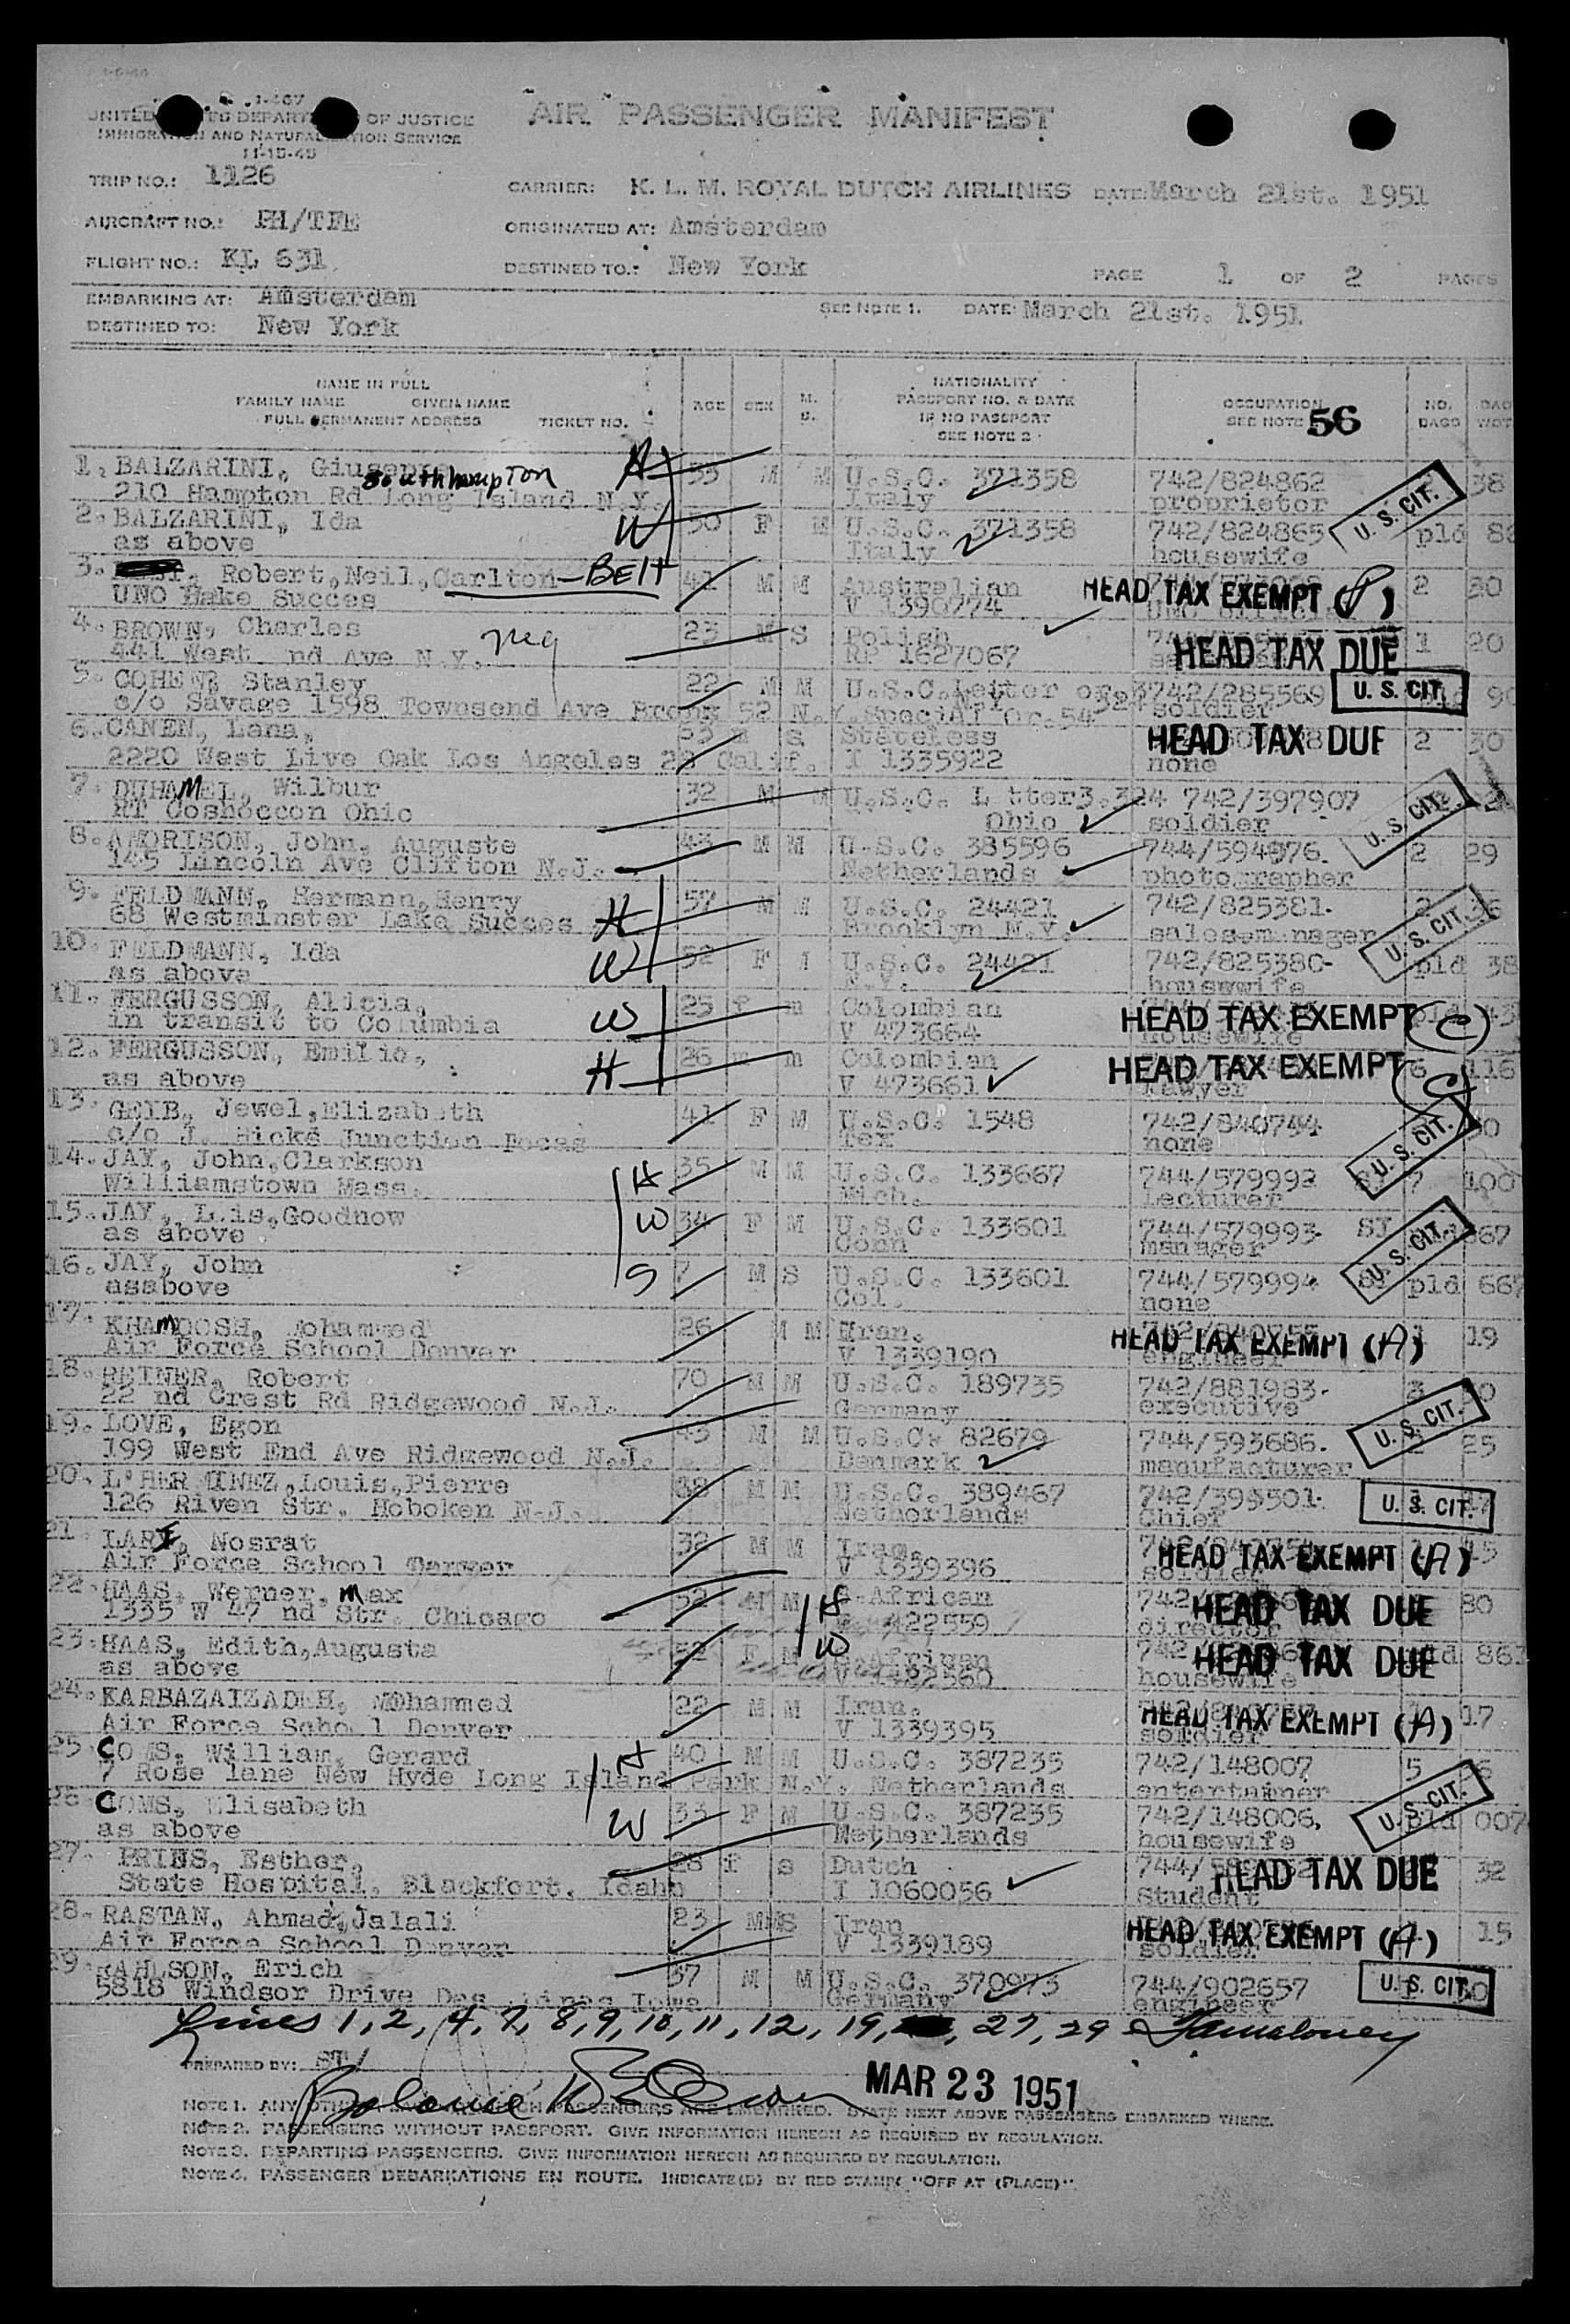 I-467
UNITED DEPARTMENT OF JUSTICE
IMMIGRATION AND NATURALIZATION SERVICE
11-15-45
AIR PASSENGER MANIFEST
TRIP NO.: 1126
CARRIER: K. L. M. ROYAL DUTCH AIRLINES DATE: March 21st. 1951
AIRCRAFT NO.: PH/TFE
ORIGINATED AT: Amsterdam
FLIGHT NO.: KL 631
DESTINED TO.: New York
PAGE 1 OF 2 PAGES
EMBARKING AT: Amsterdam
SEE NOTE 1. DATE: March 21st. 1951
DESTINED TO: New York
NAME IN FULL
FAMILY NAME GIVEN NAME
FULL PERMANENT ADDRESS TICKET NO.
AGE SEX M. S.
NATIONALITY
PASSPORT NO. & DATE
IF NO PASSPORT
SEE NOTE 2
OCCUPATION
SEE NOTE 56
NO. BAGG
1. BALZARINI, Giuseppe H 55 M M U.S.C. 371358 742/824862 38
210 Hampton Rd Long Island N.Y. Southhampton Italy proprietor U. S. CIT.
2. BALZARINI, Ida W 50 F M U.S.C. 371358 742/824865 pld
as above Italy housewife
3. Robert,Neil,Carlton-BELT 41 M M Australian HEAD TAX EXEMPT 2 30
UNO Lake Succes V 1390774
4. BROWN, Charles 23 M S Polish HEAD TAX DUE 1 20
441 West nd Ave N.Y. RP 1627067
5. COHEN, Stanley 22 M M U.S.C. Letter 742/285569 U. S. CIT.
c/o Savage 1598 Townsend Ave Bronx 52 N.Y. Special Or.54 soldier
6. CANEN, Lana, S Stateless HEAD TAX DUE 2 30
2220 West Live Oak Los Angeles 28 Calif. I 1335922 none
7. DUHAMEL, Wilbur 32 M M U.S.C. L tter3.324 742/397907
RT Coshoccon Ohio Ohio soldier U. S. CIT.
8. AMORISON, John, Auguste 43 M M U.S.C. 385596 744/594976. 2 29
145 Lincoln Ave Clifton N.J. Netherlands photographer
9. FELDMANN, Hermann,Henry H 57 M M U.S.C. 24421 742/825381. 2 36
68 Westminster Lake Succes Brooklyn N.Y. salesmanager U. S. CIT.
10. FELDMANN, Ida W 52 F M U.S.C. 24421 742/825380- pld 38
as above N.Y. housewife
11. FERGUSSON, Alicia, W 25 f m Colombian HEAD TAX EXEMPT (C)
in transit to Columbia V 473664 housewife
12. FERGUSSON, Emilio, H 26 m m Colombian HEAD TAX EXEMPT (C) 6 116
as above V 473661 lawyer
13. GEIB, Jewel,Elizabeth 41 F M U.S.C. 1548 742/840744
c/o J. Hicks Junction Tex none U. S. CIT.
14. JAY, John,Clarkson H 35 M M U.S.C. 133667 744/579992 7 100
Williamstown Mass. Mich. lecturer
15. JAY, L is,Goodnow W 34 F M U.S.C. 133601 744/579993 SJ pld 667
as above Conn manager U. S. CIT.
16. JAY, John S 7 M S U.S.C. 133601 744/579994 pld 667
assbove Col. none
17. KHAMOOSH, Mohammed 26 M M Eran. HEAD TAX EXEMPT (A) 19
Air Force School Denver V 1339190 engineer
18. REINER, Robert 70 M M U.S.C. 189735 742/881983.
22 nd Crest Rd Ridgewood N.J. Germany executive
19. LOVE, Egon 43 M M U.S.C. 82679 744/593686. U. S. CIT. 25
199 West End Ave Ridgewood N.J. Denmark manufacturer
20. L'HERMINEZ,Louis,Pierre 38 M M U.S.C. 389467 742/395501. U. S. CIT.
126 Riven Str. Hoboken N.J. Netherlands Chief
21. LARI, Nosrat 32 M M Iran. HEAD TAX EXEMPT (A) 15
Air Force School Denver V 1339396 soldier
22. HAAS, Werner, Max 52 M M H S.African HEAD TAX DUE 30
1335 W 47 nd Str. Chicago director
23. HAAS, Edith,Augusta 52 F M W S.African HEAD TAX DUE pld 861
as above V 1422560 housewife
24. KARBAZAIZADEH, Mohammed 22 M M Iran. HEAD TAX EXEMPT (A) 17
Air Force Scho l Denver V 1339395 soldier
25. COMS, William, Gerard H 40 M M U.S.C. 387235 742/148007 5
7 Rose lane New Hyde Long Island Park N.Y. Netherlands entertainer
26. COMS, Elisabeth W 33 F M U.S.C. 387235 742/148006. U. S. CIT. pld 007
as above Netherlands housewife
27. PRINS, Esther, 28 f s Dutch HEAD TAX DUE 32
State Hospital, Blackfort, Idaho I 1060056 Student
28. RASTAN, Ahmad,Jalali 23 M S Iran HEAD TAX EXEMPT (A) 15
Air Force School Denver V 1339189 soldier
29. RAHLSON, Erich 37 M M U.S.C. 370973 744/902657 U. S. CIT.
5818 Windsor Drive Des Iowa Germany engineer
Lines 1, 2, 4, 7, 8, 9, 10, 11, 12, 19, 27, 29
PREPARED BY: ST/
MAR 23 1951
NOTE 1. ANY PASSENGERS ARE EMBARKED. STATE NEXT ABOVE PASSENGERS EMBARKED THERE.
NOTE 2. PASSENGERS WITHOUT PASSPORT. GIVE INFORMATION HEREON AS REQUIRED BY REGULATION.
NOTE 3. DEPARTING PASSENGERS. GIVE INFORMATION HEREON AS REQUIRED BY REGULATION.
NOTE 4. PASSENGER DEBARKATIONS EN ROUTE. INDICATE(D) BY RED STAMP "OFF AT (PLACE)".